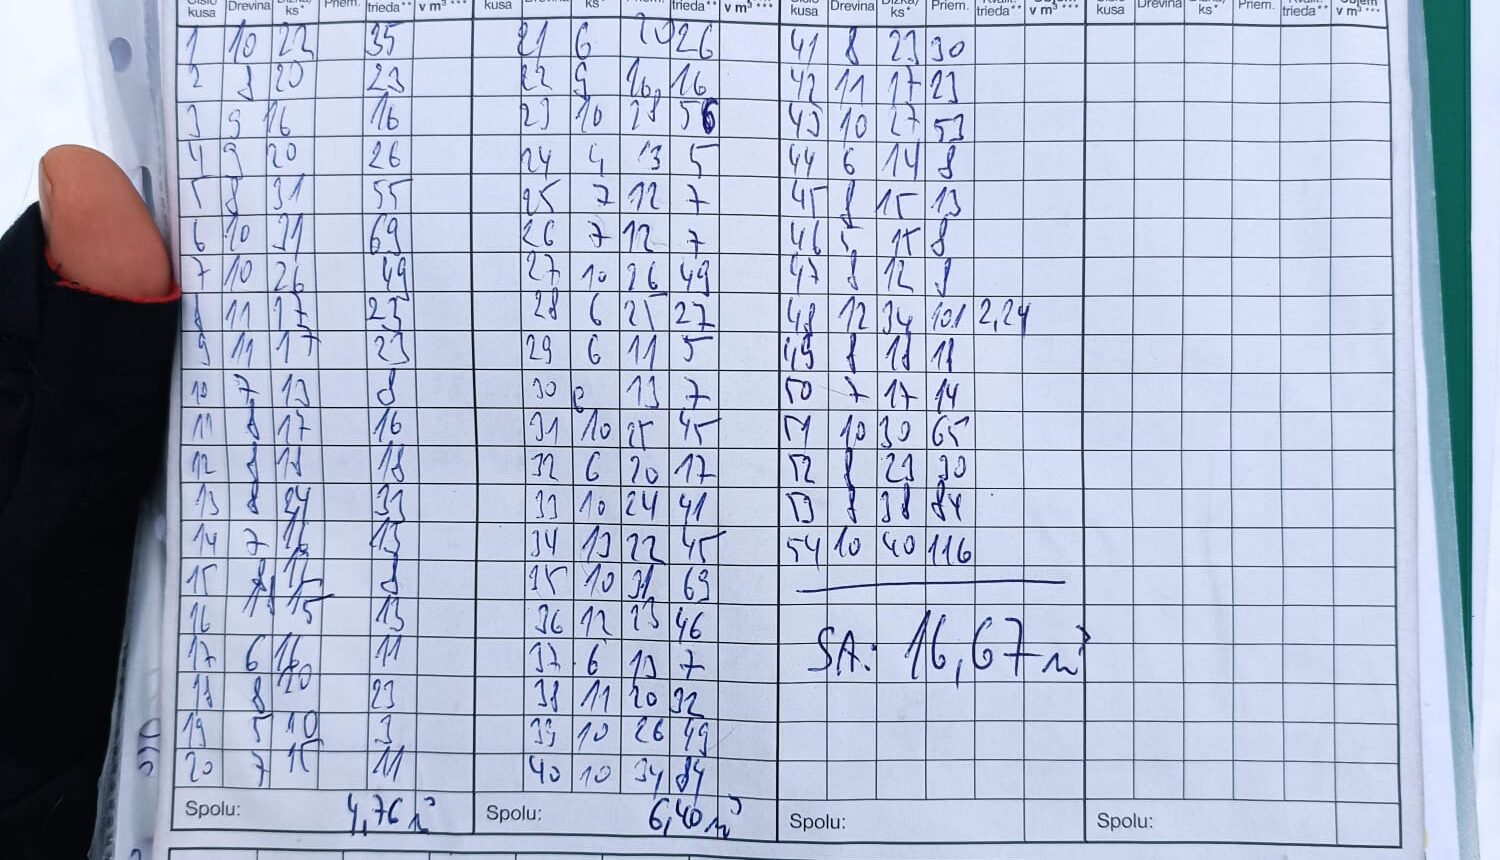 kusa Drevina ks* Priem. trieda** v m³*** kusa ks* trieda** v m³*** kusa Drevina ks* Priem. trieda** v m³*** kusa Drevina ks* Priem. trieda** v m³***
1 10 22 35 21 6 20 26 41 8 23 30
2 8 20 23 22 9 16 16 42 11 17 23
3 9 16 16 23 10 28 56 43 10 27 53
4 9 20 26 24 4 13 5 44 6 14 8
5 8 31 55 25 7 12 7 45 8 15 13
6 10 31 69 26 7 12 7 46 5 15 8
7 10 26 49 27 10 26 49 47 8 12 8
8 11 17 23 28 6 25 27 48 12 34 101 2,24
9 11 17 23 29 6 11 5 49 8 18 18
10 7 13 8 30 13 7 50 7 17 14
11 8 17 16 31 10 25 45 51 10 30 65
12 8 18 18 32 6 20 17 52 8 23 30
13 8 24 33 33 10 24 41 53 8 38 84
14 7 16 13 34 13 22 45 54 10 40 116
15 8 12 8 35 10 31 69
16 8 15 13 36 12 23 46
17 6 16 11 37 6 13 7 SA: 16,67 m³
18 8 20 23 38 11 20 32
19 5 10 3 39 10 26 49
20 7 15 11 40 10 34 84
Spolu: 4,76 m³ Spolu: 6,40 m³ Spolu: Spolu: